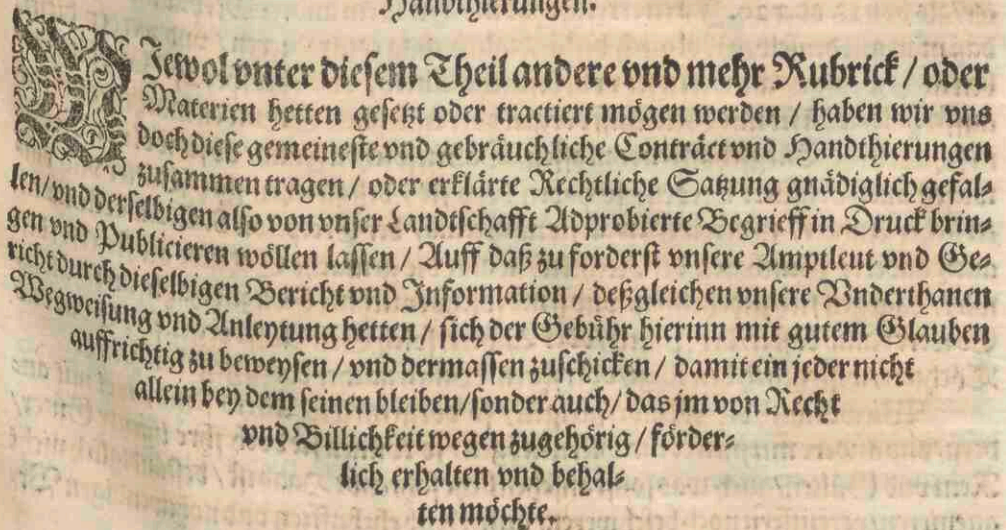 Handthierungen.
WJewol vnter diesem Theil andere vnd mehr Rubrick / oder
Materien hetten gesetzt oder tractiert mögen werden / haben wir vns
doch diese gemeineste vnd gebräuchliche Conträct vnd Handthierungen
zusammen tragen / oder erklärte Rechtliche Satzung gnädiglich gefal-
len / vnd derselbigen also von vnser Landtschafft Adprobierte Begrieff in Druck brin-
gen vnd Publicieren wöllen lassen / Auff daß zu forderst vnsere Amptleut vnd Ge-
richt durch dieselbigen Bericht vnd Information / deßgleichen vnsere Vnderthanen
Wegweisung vnd Anleytung hetten / sich der Gebühr hierinn mit gutem Glauben
auffrichtig zu beweysen / vnd dermassen zuschicken / damit ein jeder nicht
allein bey dem seinen bleiben / sonder auch / das jm von Recht
vnd Billichkeit wegen zugehörig / förder-
lich erhalten vnd behal-
ten möchte.